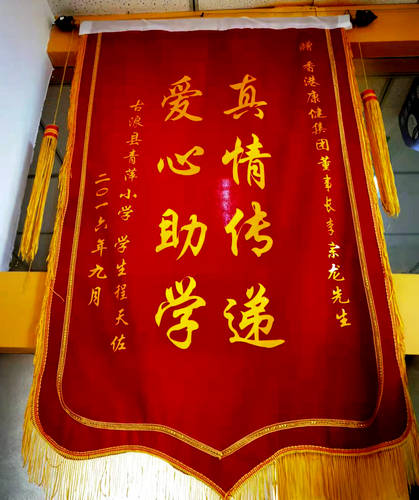 赠 香港康健集团董事长李宗龙先生
真情传递
爱心助学
古浪县青萍小学 学生程天佐
二〇一六年九月